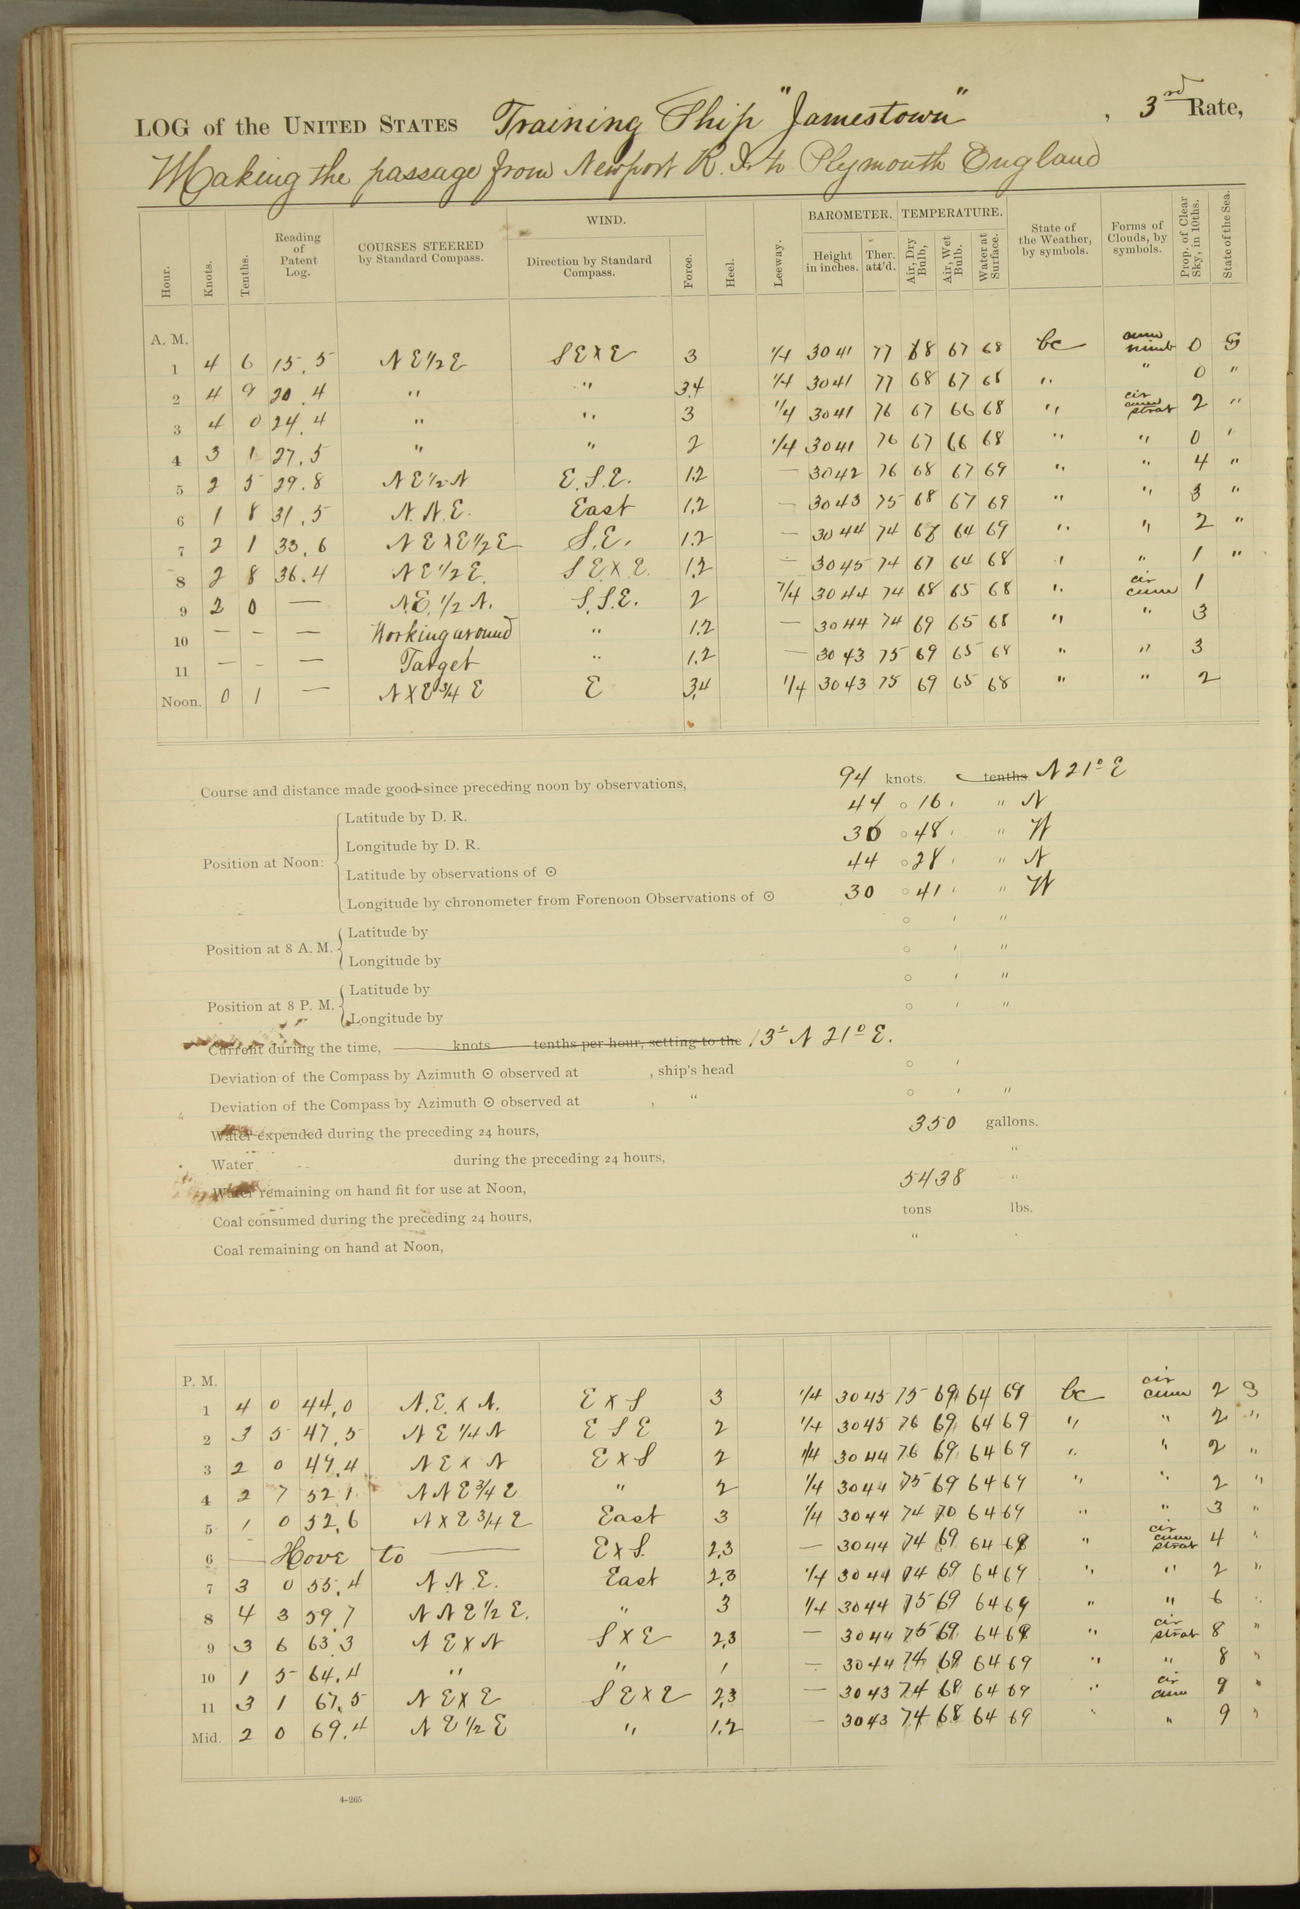 LOG of the UNITED STATES Training Ship "Jamestown", 3rd Rate,
Making the passage from Newport R. I. to Plymouth England
Hour. Knots. Tenths. Reading of Patent Log. COURSES STEERED by Standard Compass. WIND. Direction by Standard Compass. Force. Heel. Leeway. BAROMETER. Height in inches. Ther. att'd. TEMPERATURE. Air, Dry Bulb, Air, Wet Bulb. Water at Surface. State of the Weather, by symbols. Forms of Clouds, by symbols. Prop. of Clear Sky, in 10ths. State of the Sea.
A. M.
1 4 6 15.5 N E 1/2 E S E X E 3 1/4 30 41 77 68 67 68 bc cum nimb 0 S
2 4 9 20.4 " " 3.4 1/4 30 41 77 68 67 68 " " 0 "
3 4 0 24.4 " " 3 1/4 30 41 76 67 66 68 " cir cum strat 2 "
4 3 1 27.5 " " 2 1/4 30 41 76 67 66 68 " " 0 "
5 2 5 29.8 N E 1/2 N E. S. E. 1.2 — 30 42 76 68 67 69 " " 4 "
6 1 8 31.5 N. N. E. East 1.2 — 30 43 75 68 67 69 " " 3 "
7 2 1 33.6 N E X E 1/2 E S. E. 1.2 — 30 44 74 68 64 69 " " 2 "
8 2 8 36.4 N E 1/2 E. S E X E. 1.2 — 30 45 74 67 64 68 " " 1 "
9 2 0 — N.E. 1/2 N. S. S. E. 2 1/4 30 44 74 68 65 68 " cir cum 1
10 — — — Working around " 1.2 — 30 44 74 69 65 68 " " 3
11 — — — Target " 1.2 — 30 43 75 69 65 68 " " 3
Noon. 0 1 — N X E 3/4 E E 3.4 1/4 30 43 75 69 65 68 " " 2
Course and distance made good since preceding noon by observations, 94 knots. tenths. N 21° E
Position at Noon:
Latitude by D. R. 44 ° 16 ' " N
Longitude by D. R. 30 ° 48 ' " W
Latitude by observations of ⊙ 44 ° 28 ' " N
Longitude by chronometer from Forenoon Observations of ⊙ 30 ° 41 ' " W
Position at 8 A. M.
Latitude by ° ' "
Longitude by ° ' "
Position at 8 P. M.
Latitude by ° ' "
Longitude by ° ' "
Current during the time, knots tenths per hour, setting to the 13' N 21° E.
Deviation of the Compass by Azimuth ⊙ observed at , ship's head ° '
Deviation of the Compass by Azimuth ⊙ observed at , " ° ' "
Water expended during the preceding 24 hours, 350 gallons.
Water during the preceding 24 hours, "
Water remaining on hand fit for use at Noon, 5438 "
Coal consumed during the preceding 24 hours, tons lbs.
Coal remaining on hand at Noon, "
P. M.
1 4 0 44.0 N. E. X N. E X S 3 1/4 30 45 75 69 64 69 bc cir cum 2 S
2 3 5 47.5 N E 1/4 N E S E 2 1/4 30 45 76 69 64 69 " " 2 "
3 2 0 49.4 N E X N E X S 2 1/4 30 44 76 69 64 69 " " 2 "
4 2 7 52.1 N N E 3/4 E " 2 1/4 30 44 75 69 64 69 " " 2 "
5 1 0 52.6 N X E 3/4 E East 3 1/4 30 44 74 70 64 69 " " 3 "
6 — Hove to — E X S. 2.3 — 30 44 74 69 64 69 " cir cum strat 4 "
7 3 0 55.4 N N E. East 2.3 1/4 30 44 74 69 64 69 " " 2 "
8 4 3 59.7 N N E 1/2 E. " 3 1/4 30 44 75 69 64 69 " " 6 "
9 3 6 63.3 N E X N S X E 2.3 — 30 44 75 69 64 69 " cir strat 8 "
10 1 5 64.4 " " 1 — 30 44 74 69 64 69 " " 8 "
11 3 1 67.5 N E X E S E X E 2.3 — 30 43 74 68 64 69 " cir cum 9 "
Mid. 2 0 69.4 N E 1/2 E " 1.2 — 30 43 74 68 64 69 " " 9 "
4-265